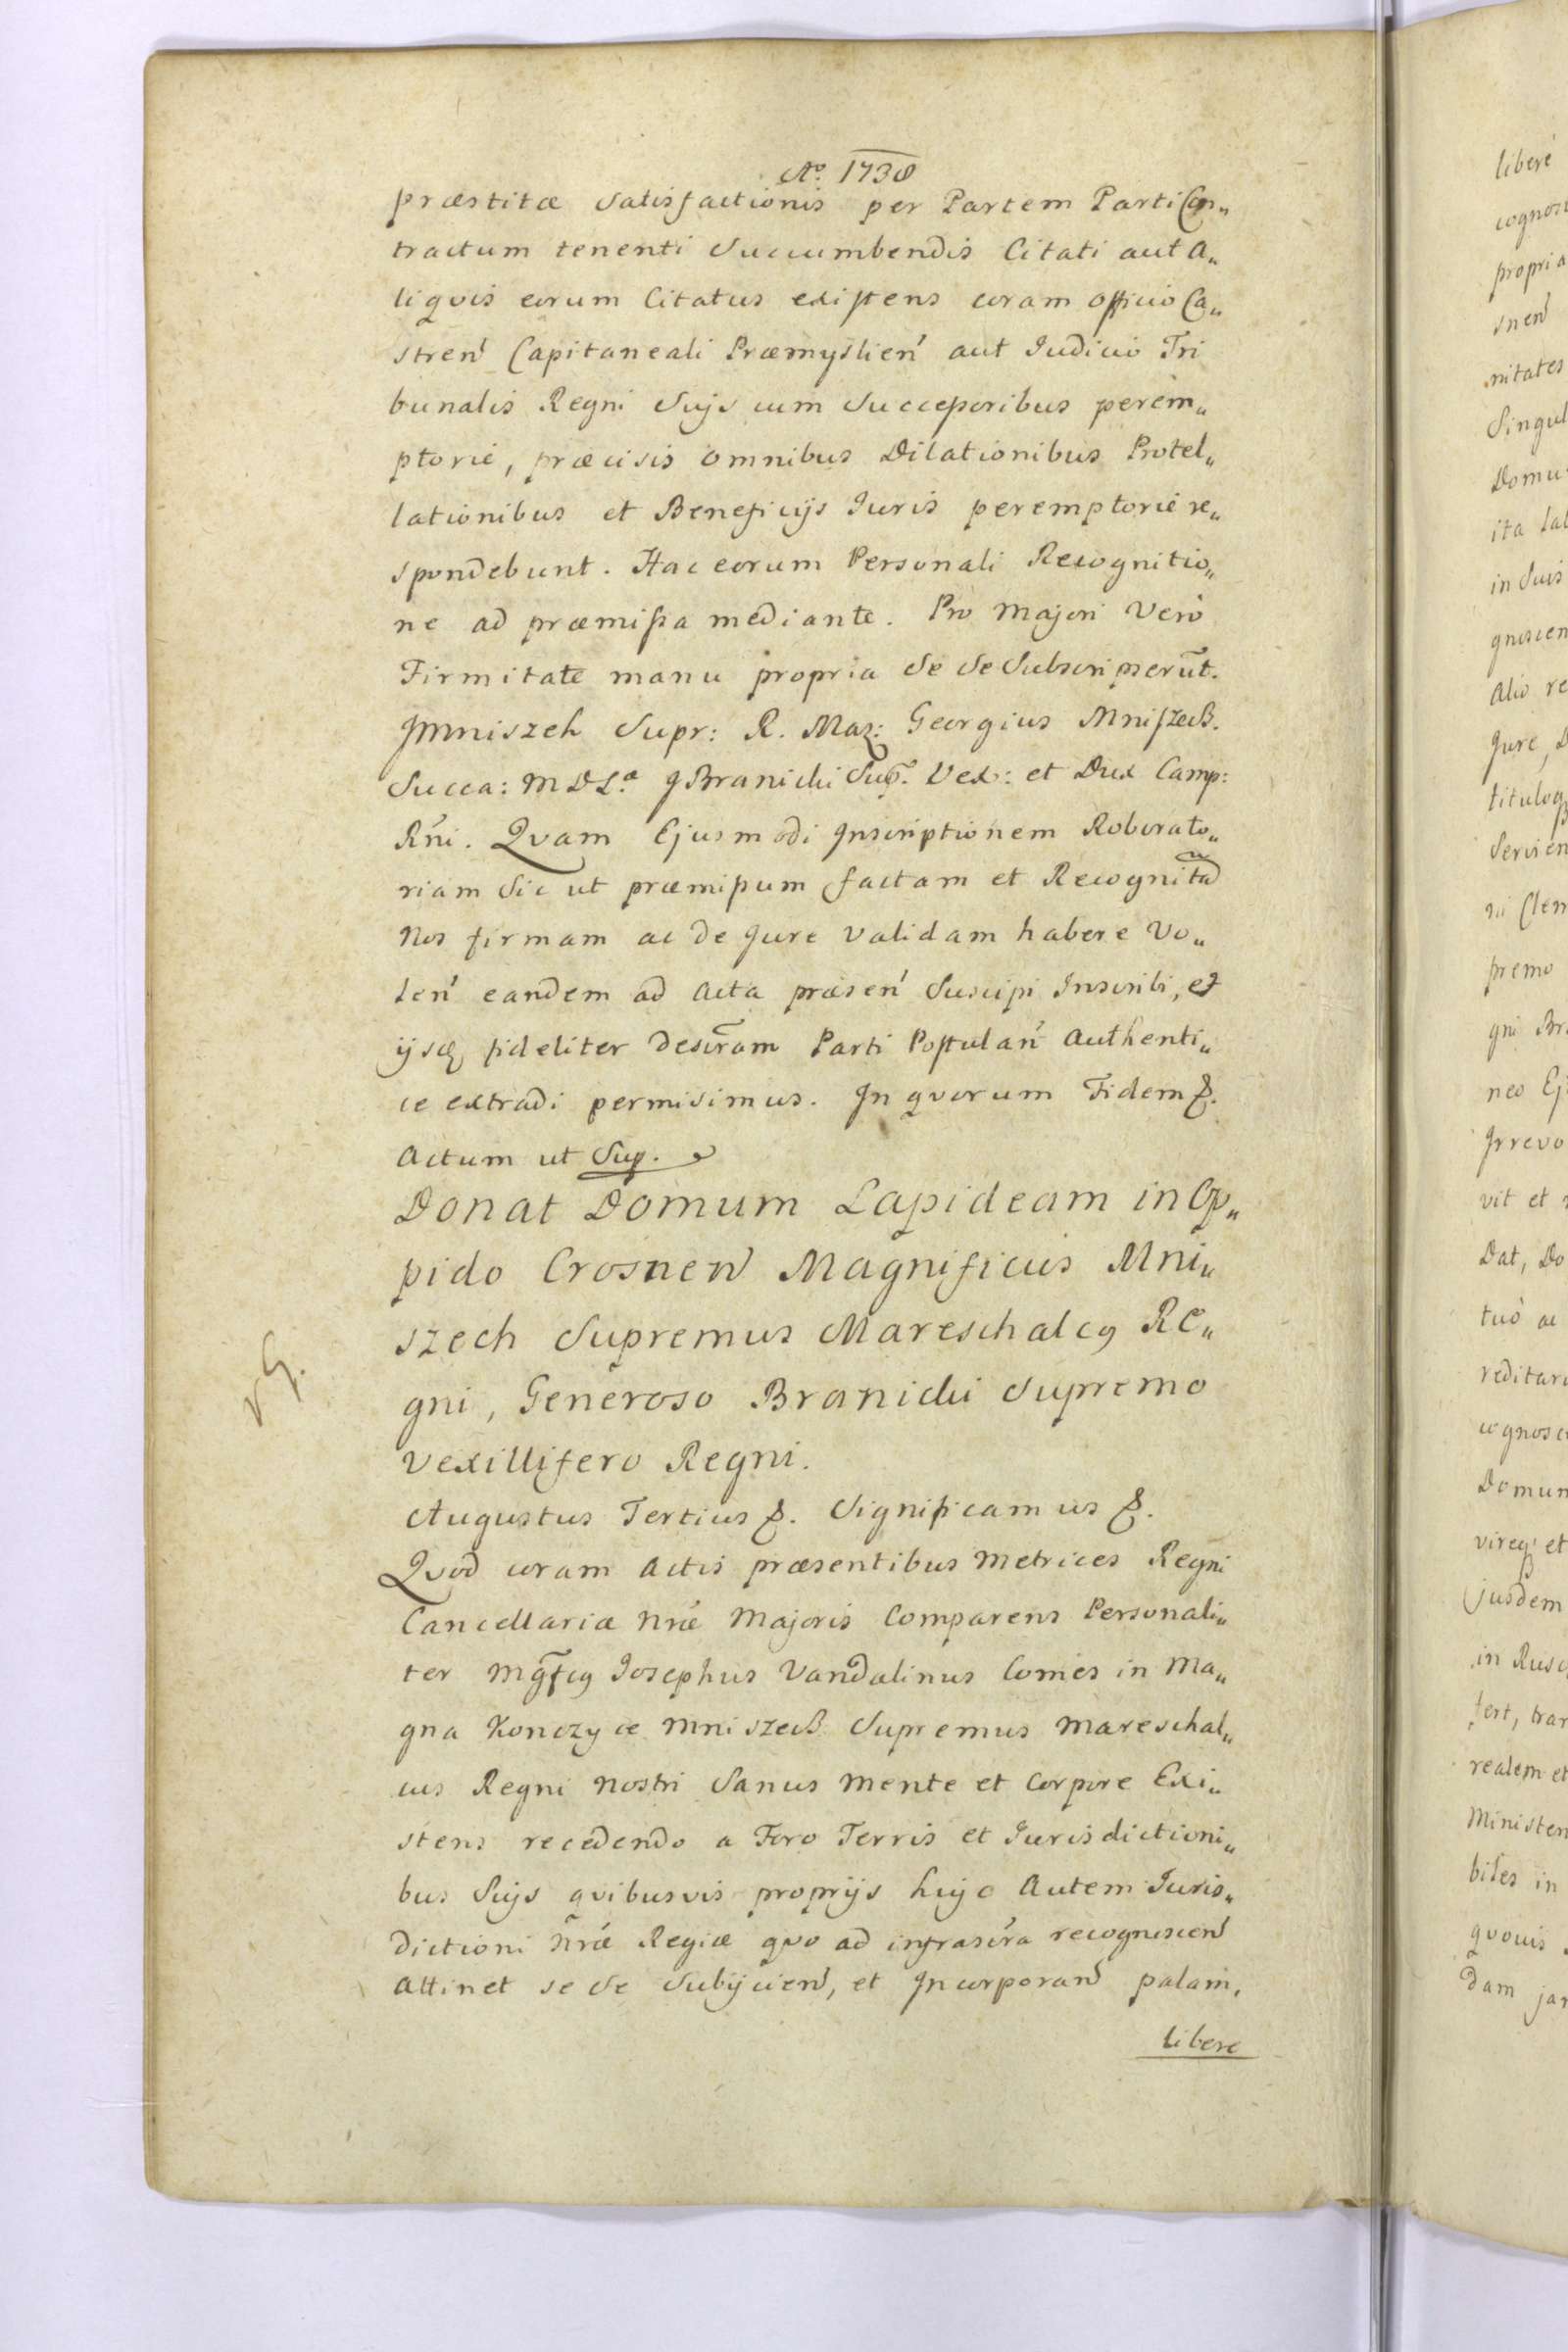 Aº 1738
præstitæ Satisfactionis per Partem Parti Con„
tractum tenenti Succumbendis Citati aut A„
liqvis eorum Citatus existens coram Officio Ca„
stren̄ Capitaneali Præmyslien̄ aut Iudicio Tri
bunalis Regni Suis cum Successoribus perem„
ptorie, præcisis omnibus Dilationibus Protel„
lationibus et Beneficijs Iuris peremptoriè re„
spondebunt. Hac eorum Personali Recognitio„
ne ad præmissa mediante. Pro Majori Verò
Firmitate manu propria Se Se Subscripserūt.
JMniszeh Supr: R. Mar: Georgius Mniszech.
Succa: M D L.ª JBranicki Sup̃. Vex: et Dux Camp:
Rn̄i. Qvam Ejusmodi Inscriptionem Roborato„
riam Sic ut præmissum factam et Recognitã
Nos firmam ac de Jure Validam habere Vo„
len̄ eandem ad Acta præsen̄ Suscipi Inscribi, et
ijsq́ fideliter Descr̃am Parti Postulan̄ Authenti„
ce extradi permisimus. In qvorum Fidem &.
Actum ut Sup.
Donat Domum Lapideam in Op„
pido Crosnen̄ Magnificus Mni„
szech Supremus Mareschalcq Re„
gni, Generoso Branicki Supremo
Vexillifero Regni.
vg.
Augustus Tertius &. Significamus &.
Qvod coram Actis præsentibus Metrices Regni
Cancellariæ Nræ Majoris Comparens Personali„
ter Mg̃fcq Josephus Vandalinus Comes in Ma„
gna Konczyce Mniszech Supremus Mareschal„
cus Regni Nostri Sanus Mente et Corpore Exi„
stens recedendo a Foro Terris et Jurisdictioni„
bus Suis qvibusvis proprijs huic Autem Juris„
dictioni Nræ Regiæ qvo ad infrascr̃a recognoscen̄
Attinet se Se Subijcien̄, et Incorporan̄ palam,
libere